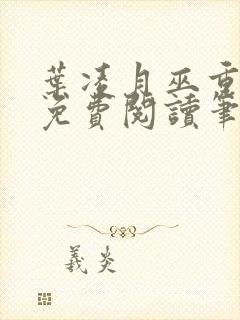 葉凌月巫重
免費閱讀筆
羲炎